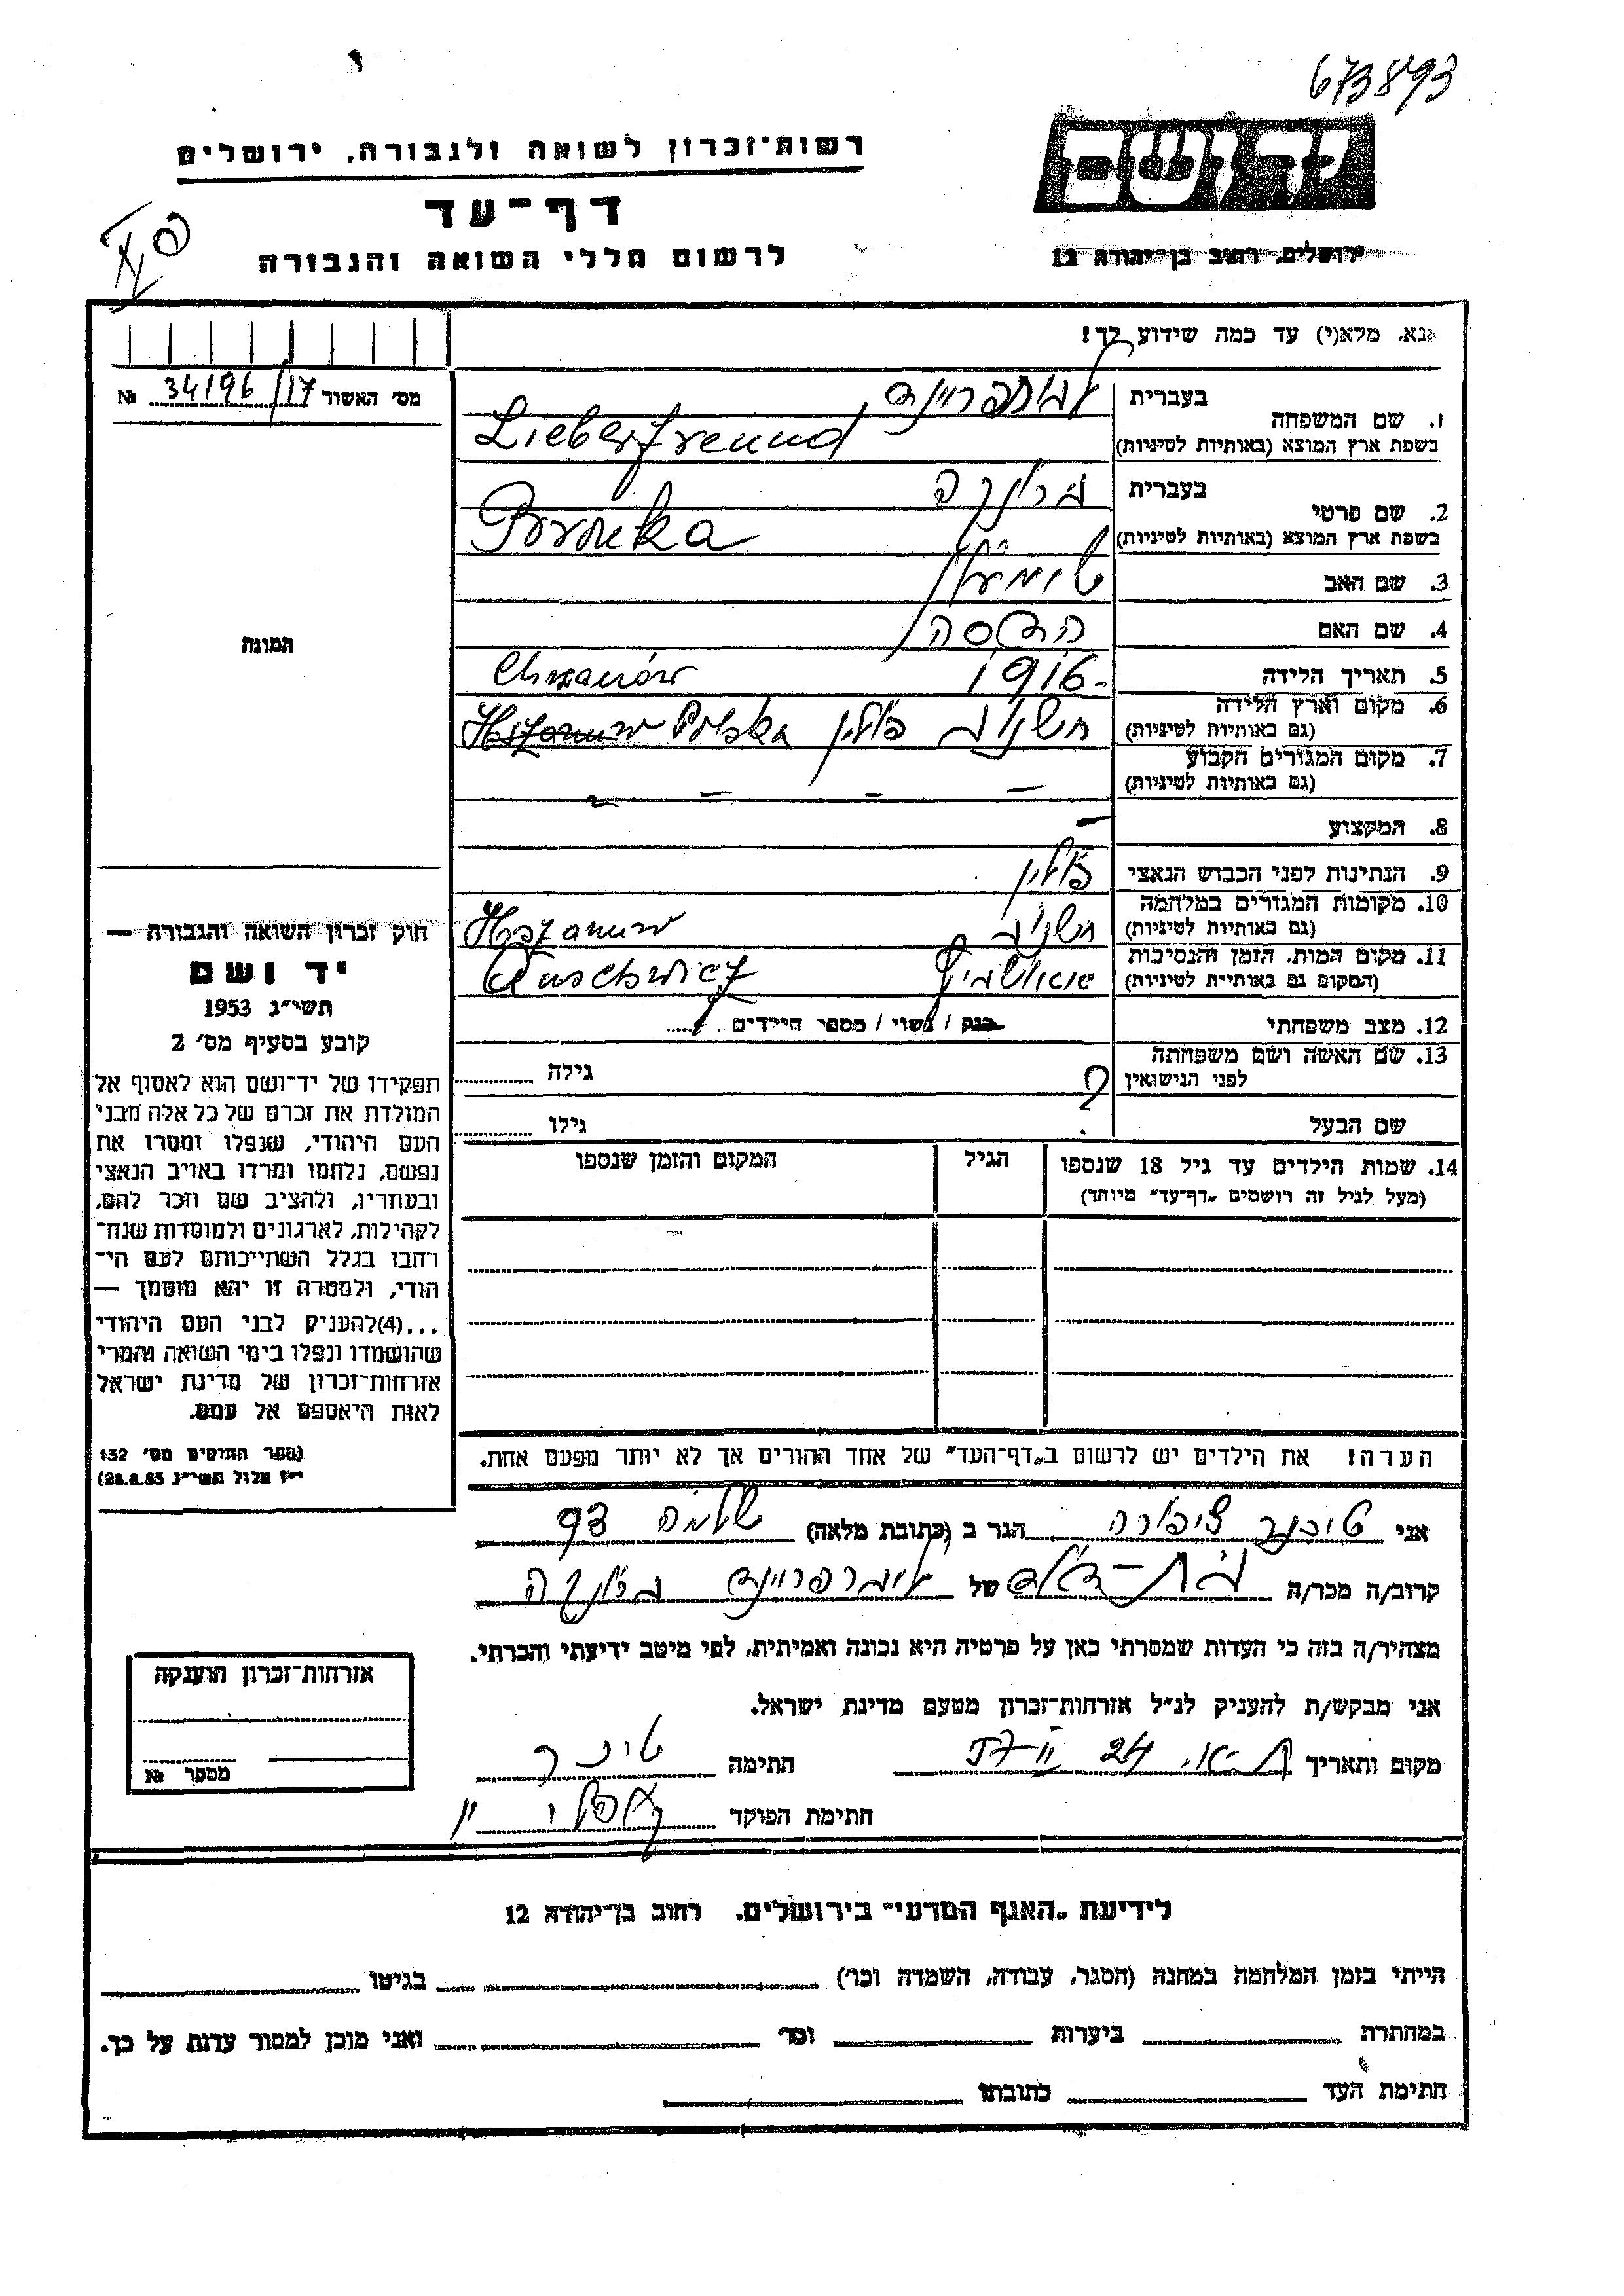 673893
יד ושם
רשות־זכרון לשואה ולגבורה, ירושלים
דף־עד
לרשום חללי השואה והגבורה
ירושלים, רחוב בן־יהודה 12
נא, מלא(י) עד כמה שידוע לך!
מס׳ האשור 34196/17 №
1. שם המשפחה
בעברית ליברפריינד
בשפת ארץ המוצא (באותיות לטיניות) Lieberfreund
2. שם פרטי
בעברית ברונקה
בשפת ארץ המוצא (באותיות לטיניות) Bronka
3. שם האב
4. שם האם הדסה
5. תאריך הלידה 1916
Chrzanów
6. מקום וארץ הלידה
(גם באותיות לטיניות) חשנוב פולין Polska
7. מקום המגורים הקבוע
(גם באותיות לטיניות) - - - -
8. המקצוע -
9. הנתינות לפני הכבוש הנאצי פולין
10. מקומות המגורים במלחמה
(גם באותיות לטיניות) חשנוב Hszanuw
11. מקום המות, הזמן והנסיבות
(המקום גם באותיית לטיניות) אושוויץ Auschwicz
12. מצב משפחתי רווק / נשוי / מספר הילדים
13. שם האשה ושם משפחתה
לפני הנישואין ? גילה
שם הבעל גילו
תמונה
חוק זכרון השואה והגבורה —
יד ושם
תשי״ג 1953
קובע בסעיף מס׳ 2
תפקידו של יד־ושם הוא לאסוף אל
המולדת את זכרם של כל אלה מבני
העם היהודי, שנפלו ומסרו את
נפשם, נלחמו ומרדו באויב הנאצי
ובעוזריו, ולהציב שם וזכר להם,
לקהילות, לארגונים ולמוסדות שנח־
רבו בגלל השתייכותם לעם הי־
הודי, ולמטרה זו יהא מוסמך —
...(4)להעניק לבני העם היהודי
שהושמדו ונפלו בימי השואה והמרי
אזרחות־זכרון של מדינת ישראל
לאות היאספם אל עמם.
(ספר החוקים מס׳ 132
י״ז אלול תשי״ג 28.8.53)
14. שמות הילדים עד גיל 18 שנספו
(מעל לגיל זה רושמים „דף־עד״ מיוחד)
הגיל
המקום והזמן שנספו
הערה! את הילדים יש לרשום ב„דף־העד״ של אחד ההורים אך לא יותר מפעם אחת.
אני טיכנר ציפורה הגר ב (כתובת מלאה) שלמה 93
קרוב/ה מכר/ה בת-דוד של ליברפריינד ברונקה
מצהיר/ה בזה כי העדות שמסרתי כאן על פרטיה היא נכונה ואמיתית, לפי מיטב ידיעתי והכרתי.
אני מבקש/ת להעניק לנ״ל אזרחות־זכרון מטעם מדינת ישראל.
מקום ותאריך ת-א. 24 חתימה טיכנר
חתימת הפוקד
אזרחות־זכרון הוענקה
מספר №
לידיעת „האגף המדעי״ בירושלים, רחוב בן־יהודה 12
הייתי בזמן המלחמה במחנה (הסגר, עבודה, השמדה וכו׳) בגיטו
במחתרת ביערות וכו׳ ואני מוכן למסור עדות על כך.
חתימת העד כתובתו